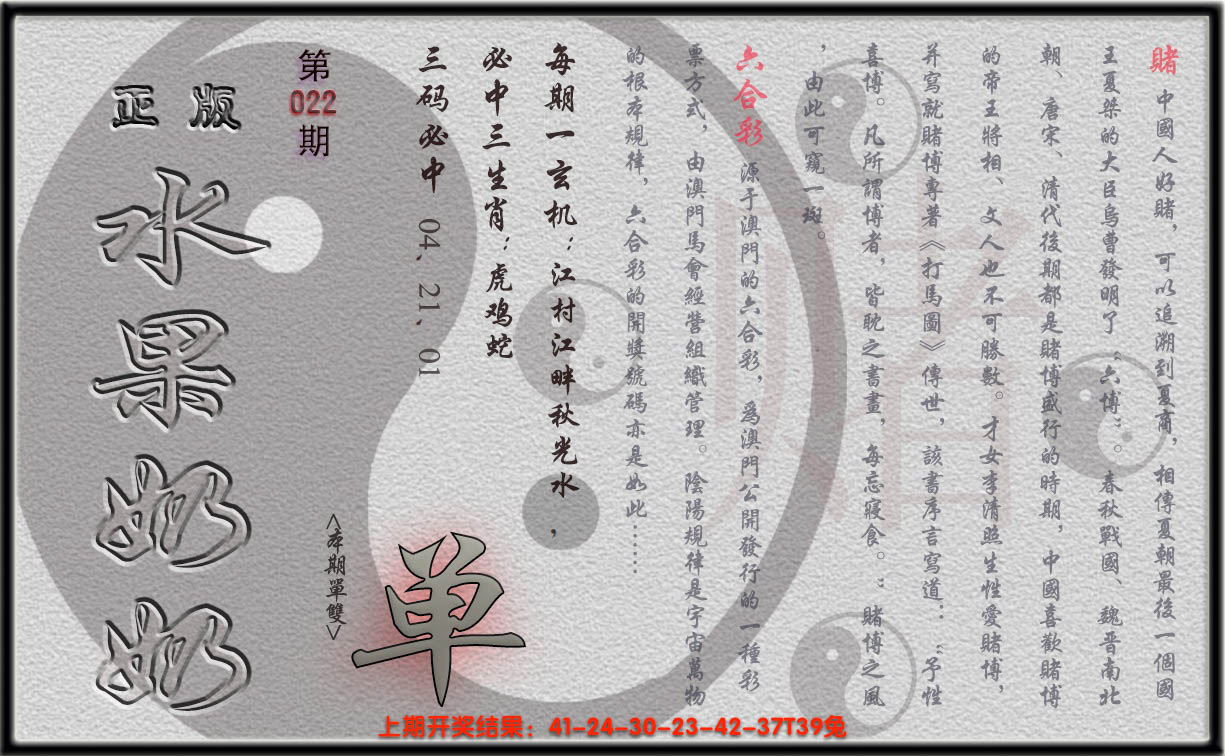 賭 中國人好賭，可以追溯到夏商，相傳夏朝最後一個國
王夏桀的大臣烏曹發明了“六博”。春秋戰國、魏晉南北
朝、唐宋、清代後期都是賭博盛行的時期，中國喜歡賭博
的帝王將相、文人也不可勝數。才女李清照生性愛賭博，
并寫就賭博專著《打馬圖》傳世，該書序言寫道：“予性
喜博。凡所謂博者，皆耽之晝晝，每忘寢食。”賭博之風
，由此可窺一斑。
六合彩 源于澳門的六合彩，爲澳門公開發行的一種彩
票方式，由澳門馬會經營組織管理。陰陽規律是宇宙萬物
的根本規律，六合彩的開獎號碼亦是如此……
每期一玄机：江村江畔秋光水，
必中三生肖：虎鸡蛇
三码必中 04、21、01
第
022
期
<本期單雙>
单
正版
水果奶奶
赌
上期开奖结果：41-24-30-23-42-37T39兔